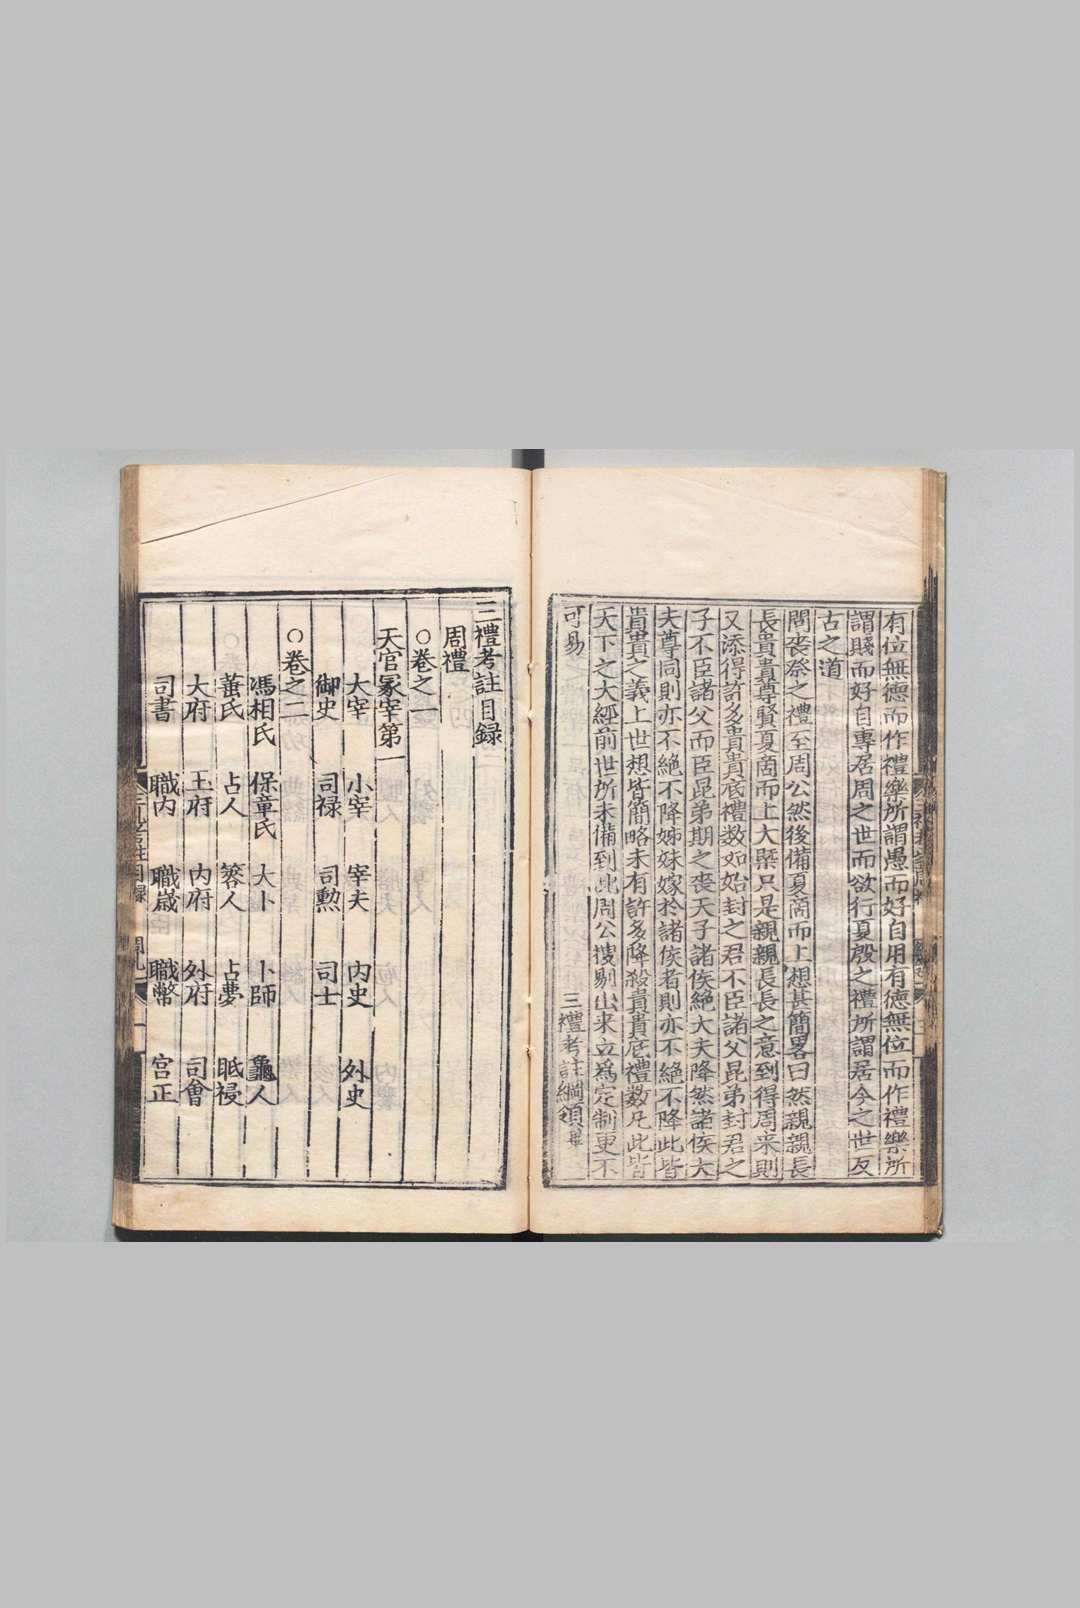 有位無德而作禮樂所謂愚而好自用有德無位而作禮樂所
謂賤而好自專居周之世而欲行夏殷之禮所謂居今之世反
古之道
問喪祭之禮至周公然後備夏商而上想甚簡畧曰然親親長
長貴貴尊賢夏商而上大槩只是親親長長之意到得周来則
又添得許多貴貴底禮数如始封之君不臣諸父昆弟封君之
子不臣諸父而臣昆弟期之喪天子諸侯絶大夫降然諸侯大
夫尊同則亦不絶不降姊妹嫁於諸侯者則亦不絶不降此皆
貴貴之義上世想皆簡略未有許多降殺貴貴底禮数凡此皆
天下之大經前世所未備到此周公搜剔出来立爲定制更不
可易
三禮考註綱領畢
三禮考註目録
周禮
○卷之一
天官冢宰第一
大宰 小宰 宰夫 内史 外史
御史 司禄 司勲 司士
○卷之二
馮相氏 保章氏 大卜 卜師 龜人
菙氏 占人 簭人 占夢 眡祲
大府 玉府 内府 外府 司會
司書 職内 職歳 職幣 宮正